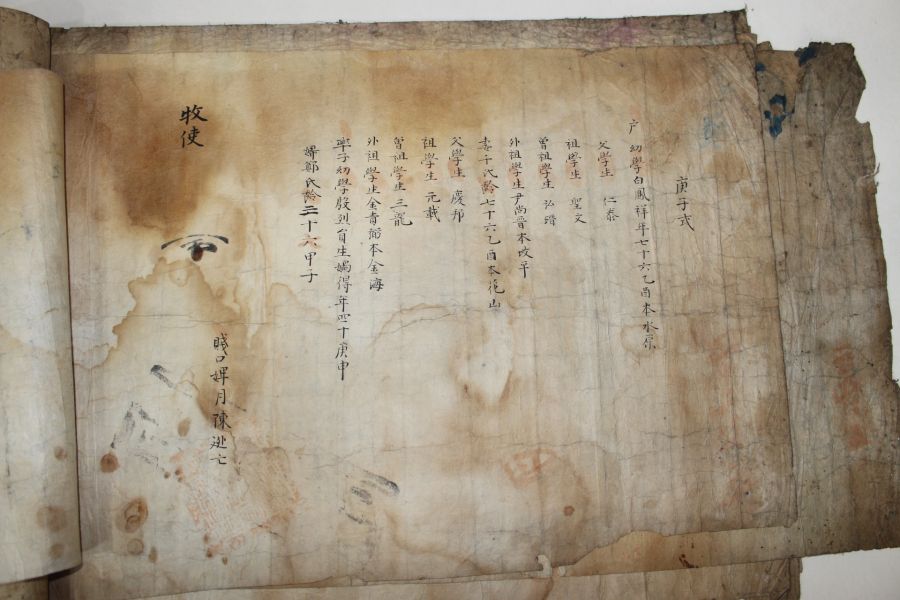 庚子式
戶 幼學白鳳祥年七十六乙酉本水原
父學生 仁泰
祖學生 聖文
曾祖學生 弘璿
外祖學生尹尚晋本坡平
妻千氏齡七十六乙酉本花山
父學生 慶邦
祖學生 元載
曾祖學生 三龍
外祖學生金貴弼本金海
率子幼學殷烈 生 得年四十庚申
婦鄭氏齡三十六甲子
賤口婢月陳逃亡
牧使